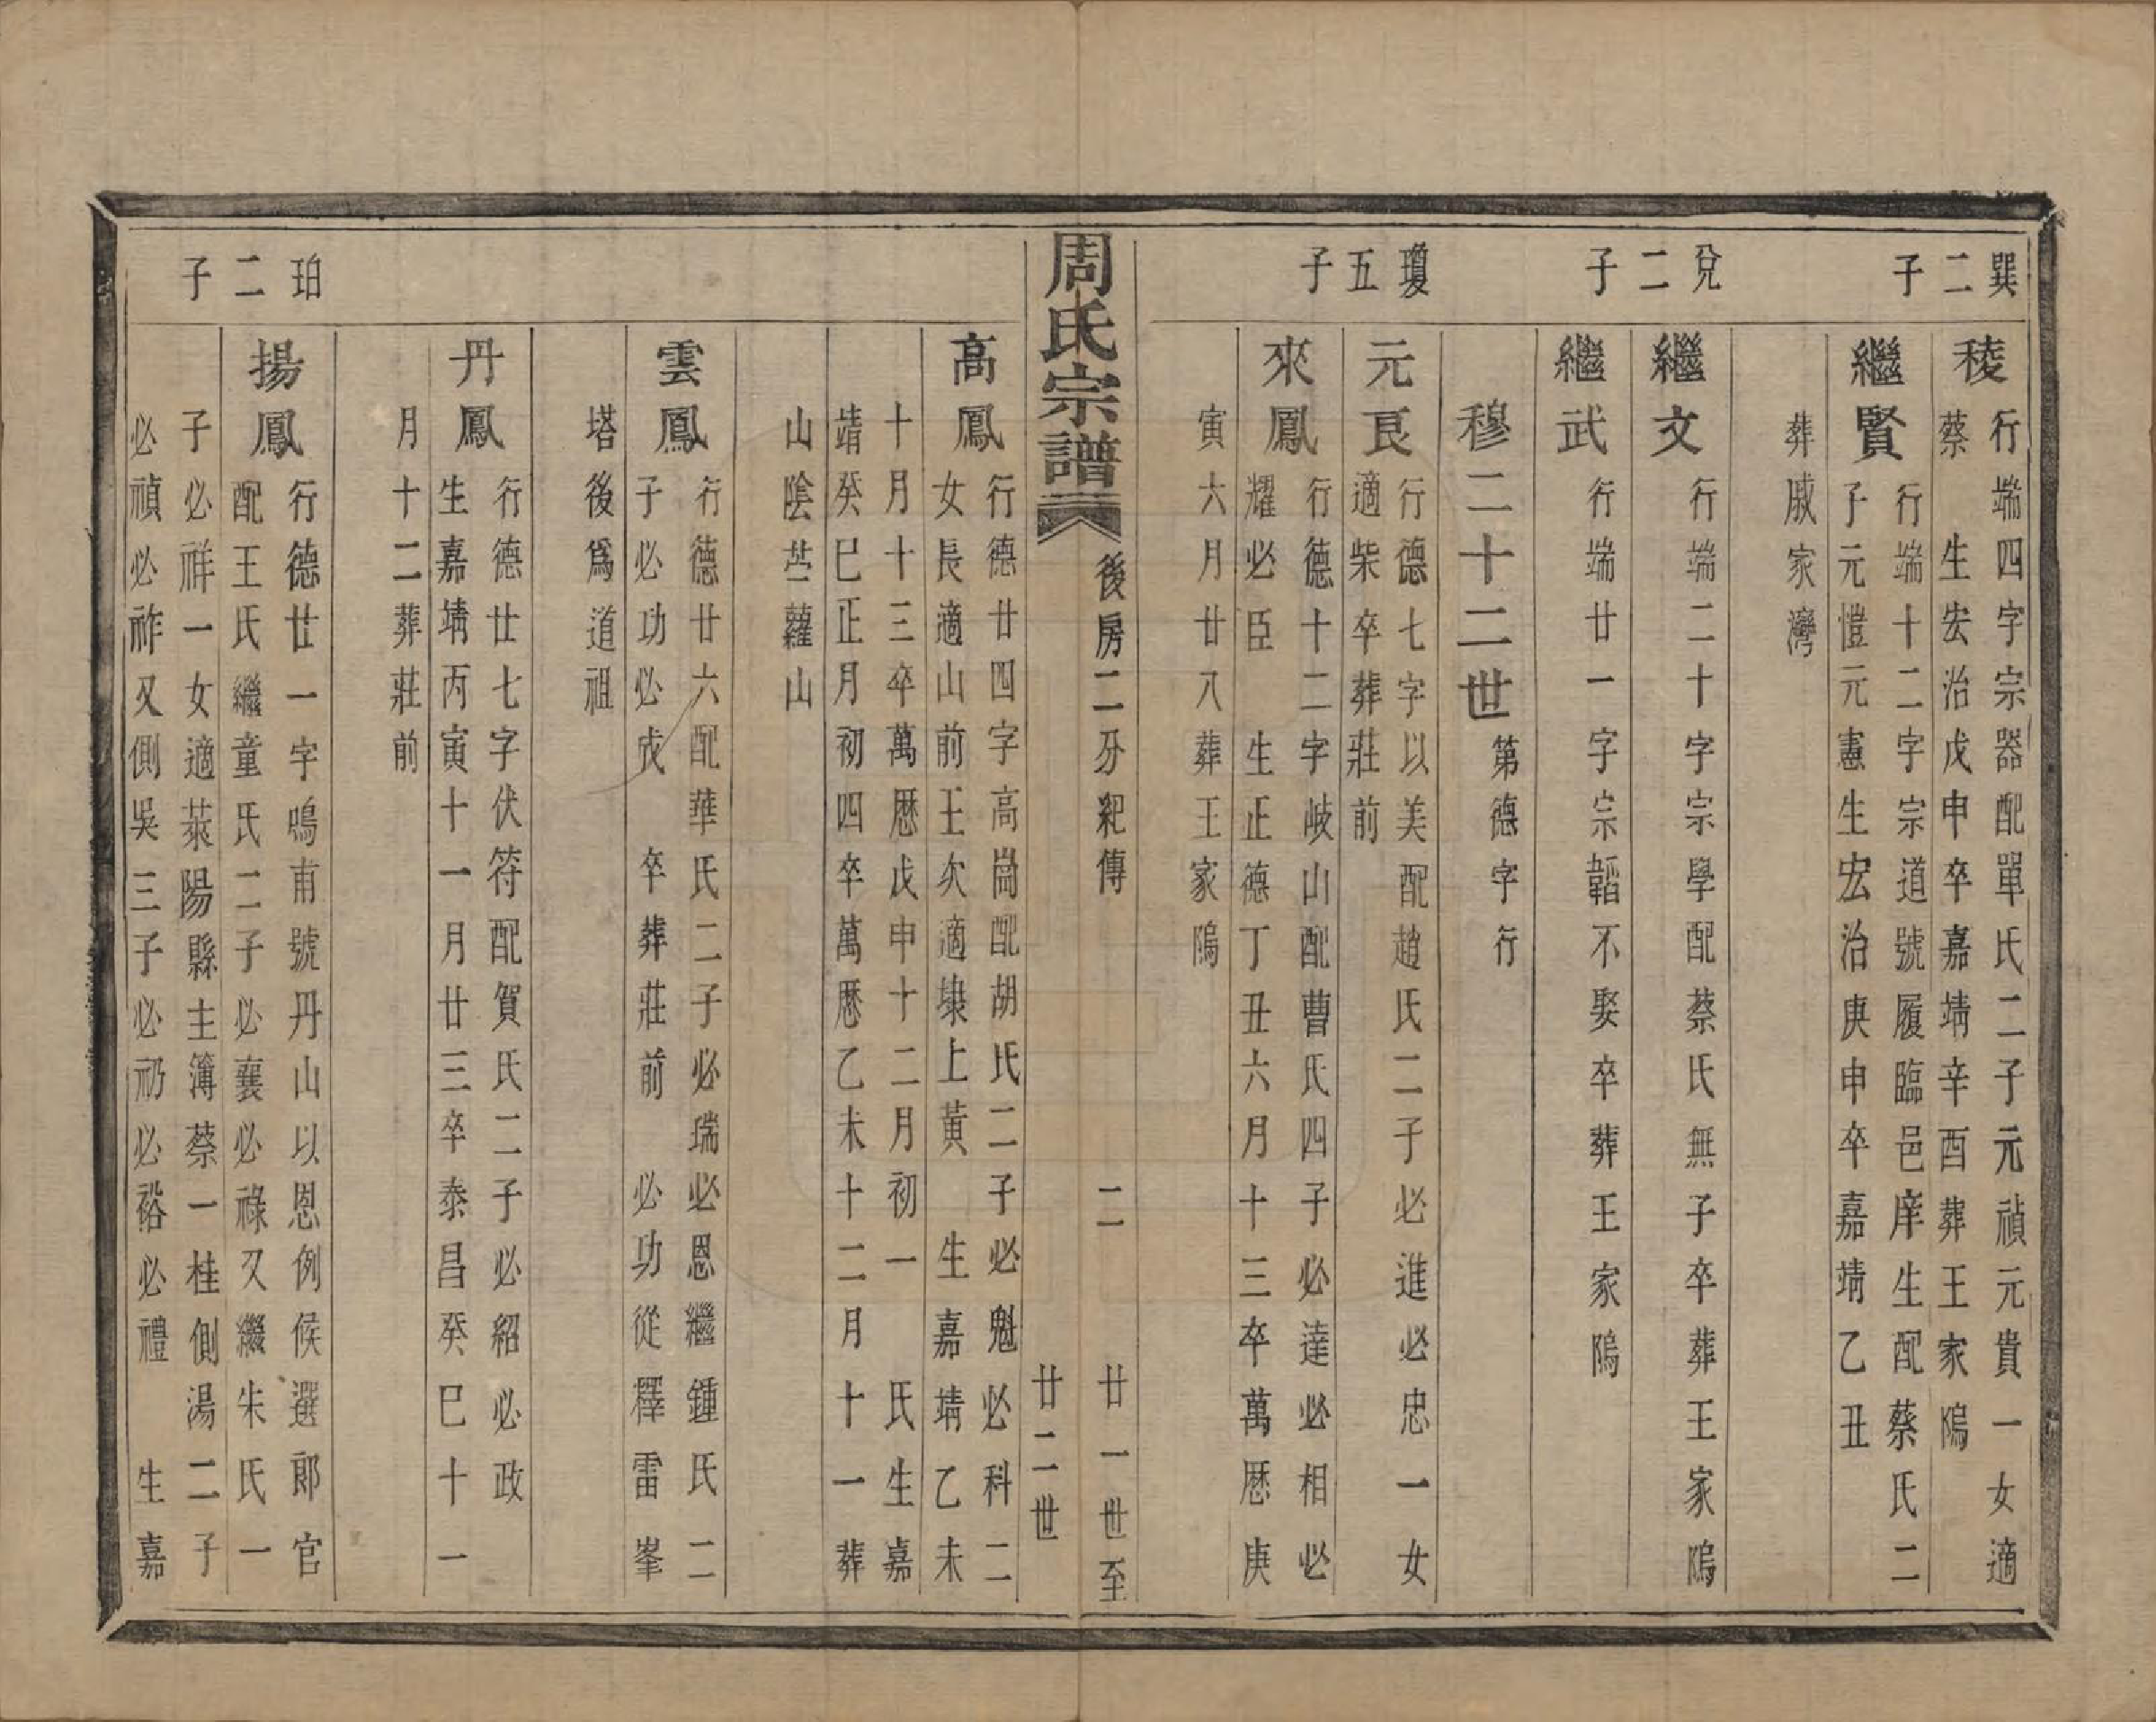 巽二子
稜
行端四字宗器配單氏二子元禎元貴一女適
蔡　生宏治戊申卒嘉靖辛酉葬王家隖
繼賢
行端十二字宗道號履臨邑庠生配蔡氏二
子元愷元憲生宏治庚申卒嘉靖乙丑
葬戚家灣
兌二子
繼文
行端二十字宗學配蔡氏無子卒葬王家隖
繼武
行端廿一字宗韜不娶卒葬王家隖
穆二十二世第德字行
瓊五子
元良
行德七字以美配趙氏二子必進必忠一女
適柴卒葬莊前
來鳳
行德十二字岐山配曹氏四子必達必相必
耀必臣　生正德丁丑六月十三卒萬厯庚
寅六月廿八葬王家隖
周氏宗譜
後房二分紀傳　二　廿一世至
廿二世
高鳳
行德廿四字高崗配胡氏二子必魁必科二
女長適山前王次適埭上黃　生嘉靖乙未
十月十三卒萬厯戊申十二月初一　氏生嘉
靖癸巳正月初四卒萬厯乙未十二月十一葬
山陰苎蘿山
雲鳳
行德廿六配華氏二子必瑞必恩繼鍾氏二
子必功必成　卒葬莊前　必功從釋雷峯
塔後爲道祖
丹鳳
行德廿七字伏符配賀氏二子必紹必政
生嘉靖丙寅十一月廿三卒泰昌癸巳十一
月十二葬莊前
珀二子
揚鳳
行德廿一字鳴甫號丹山以恩例候選郎官
配王氏繼童氏二子必襄必祿又繼朱氏一
子必祥一女適萊陽縣主簿蔡一桂側湯二子
必禎必祚又側吳三子必礽必裕必禮　生嘉